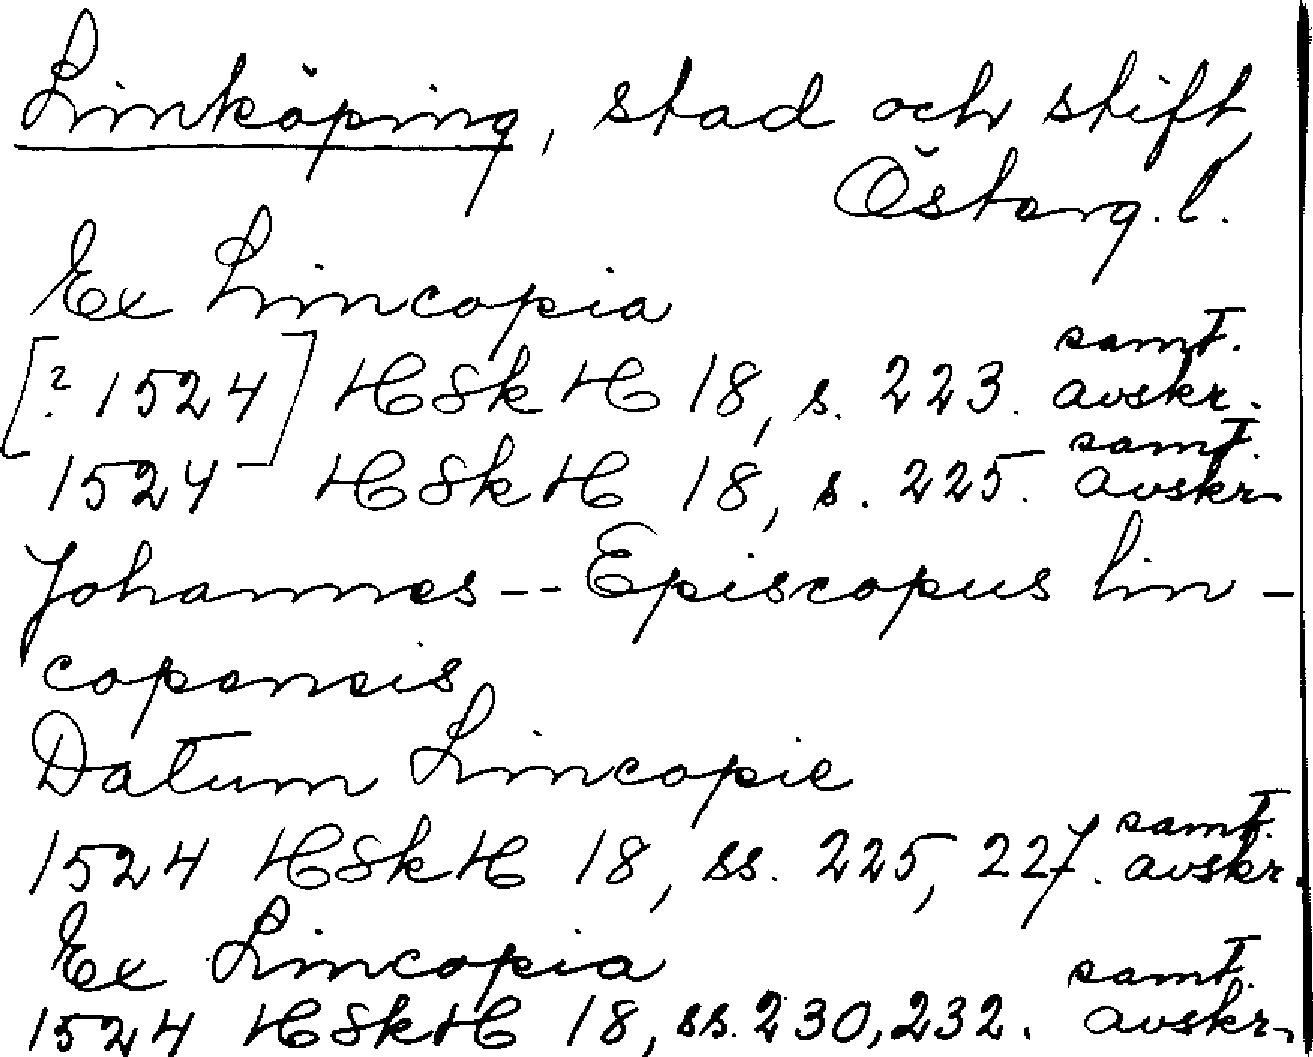 Linköping, stad och stift,
Österg. l.
Ex Lincopia
[? 1524] HSkH 18, s. 223. samt. avskr.
1524 HSkH 18, s. 225. samt. avskr.
Johannes -- Episcopus lin-
copensis
Datum Lincopie
1524 HSkH 18, ss. 225, 227. samt. avskr.
Ex Lincopia
1524 HSkH 18, ss. 230, 232. samt. avskr.